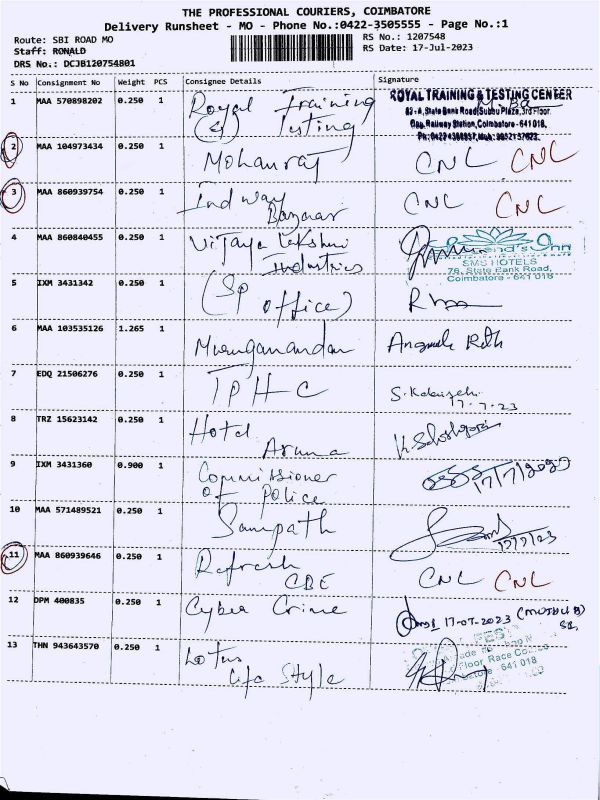 THE PROFESSIONAL COURIERS, COIMBATORE
Delivery Runsheet - MO - Phone No.:0422-3505555 - Page No.:1
Route: SBI ROAD MO
RS No.: 1207548
Staff: RONALD
RS Date: 17-Jul-2023
DRS No.: DCJB120754801
S No Consignment No Weight PCS Consignee Details Signature
1 MAA 570898202 0.250 1 Royal Training ROYAL TRAINING & TESTING CENTER
(&) Testing 82-A, State Bank Road, Subbu Plaza, 3rd Floor
Opp. Railway Station, Coimbatore - 641 018,
2 MAA 104973434 0.250 1 Mohanraj CNL CNL
3 MAA 860939754 0.250 1 Ind way CNL CNL
Bazaar
4 MAA 860840455 0.250 1 Vijaya Lakshmi
Industries SMS HOTELS
76, State Bank Road,
Coimbatore - 641 018
5 IXM 3431342 0.250 1 (SP
office)
6 MAA 103535126 1.265 1 Murunganandan
7 EDQ 21506276 0.250 1 IPHC
17.7.23
8 TRZ 15623142 0.250 1 Hotel
Aruna
9 IXM 3431360 0.900 1 Commissioner 17/7/2023
of Police
10 MAA 571489521 0.250 1 Sampath
17/7/23
11 MAA 860939646 0.250 1 Refresh CNL CNL
CBE
12 DPM 400835 0.250 1 Cyber Crime 17-07-2023 (MUJBUR
SI.
13 THN 943643570 0.250 1 Lotus
Floor, Race Co
641 018
Life Style